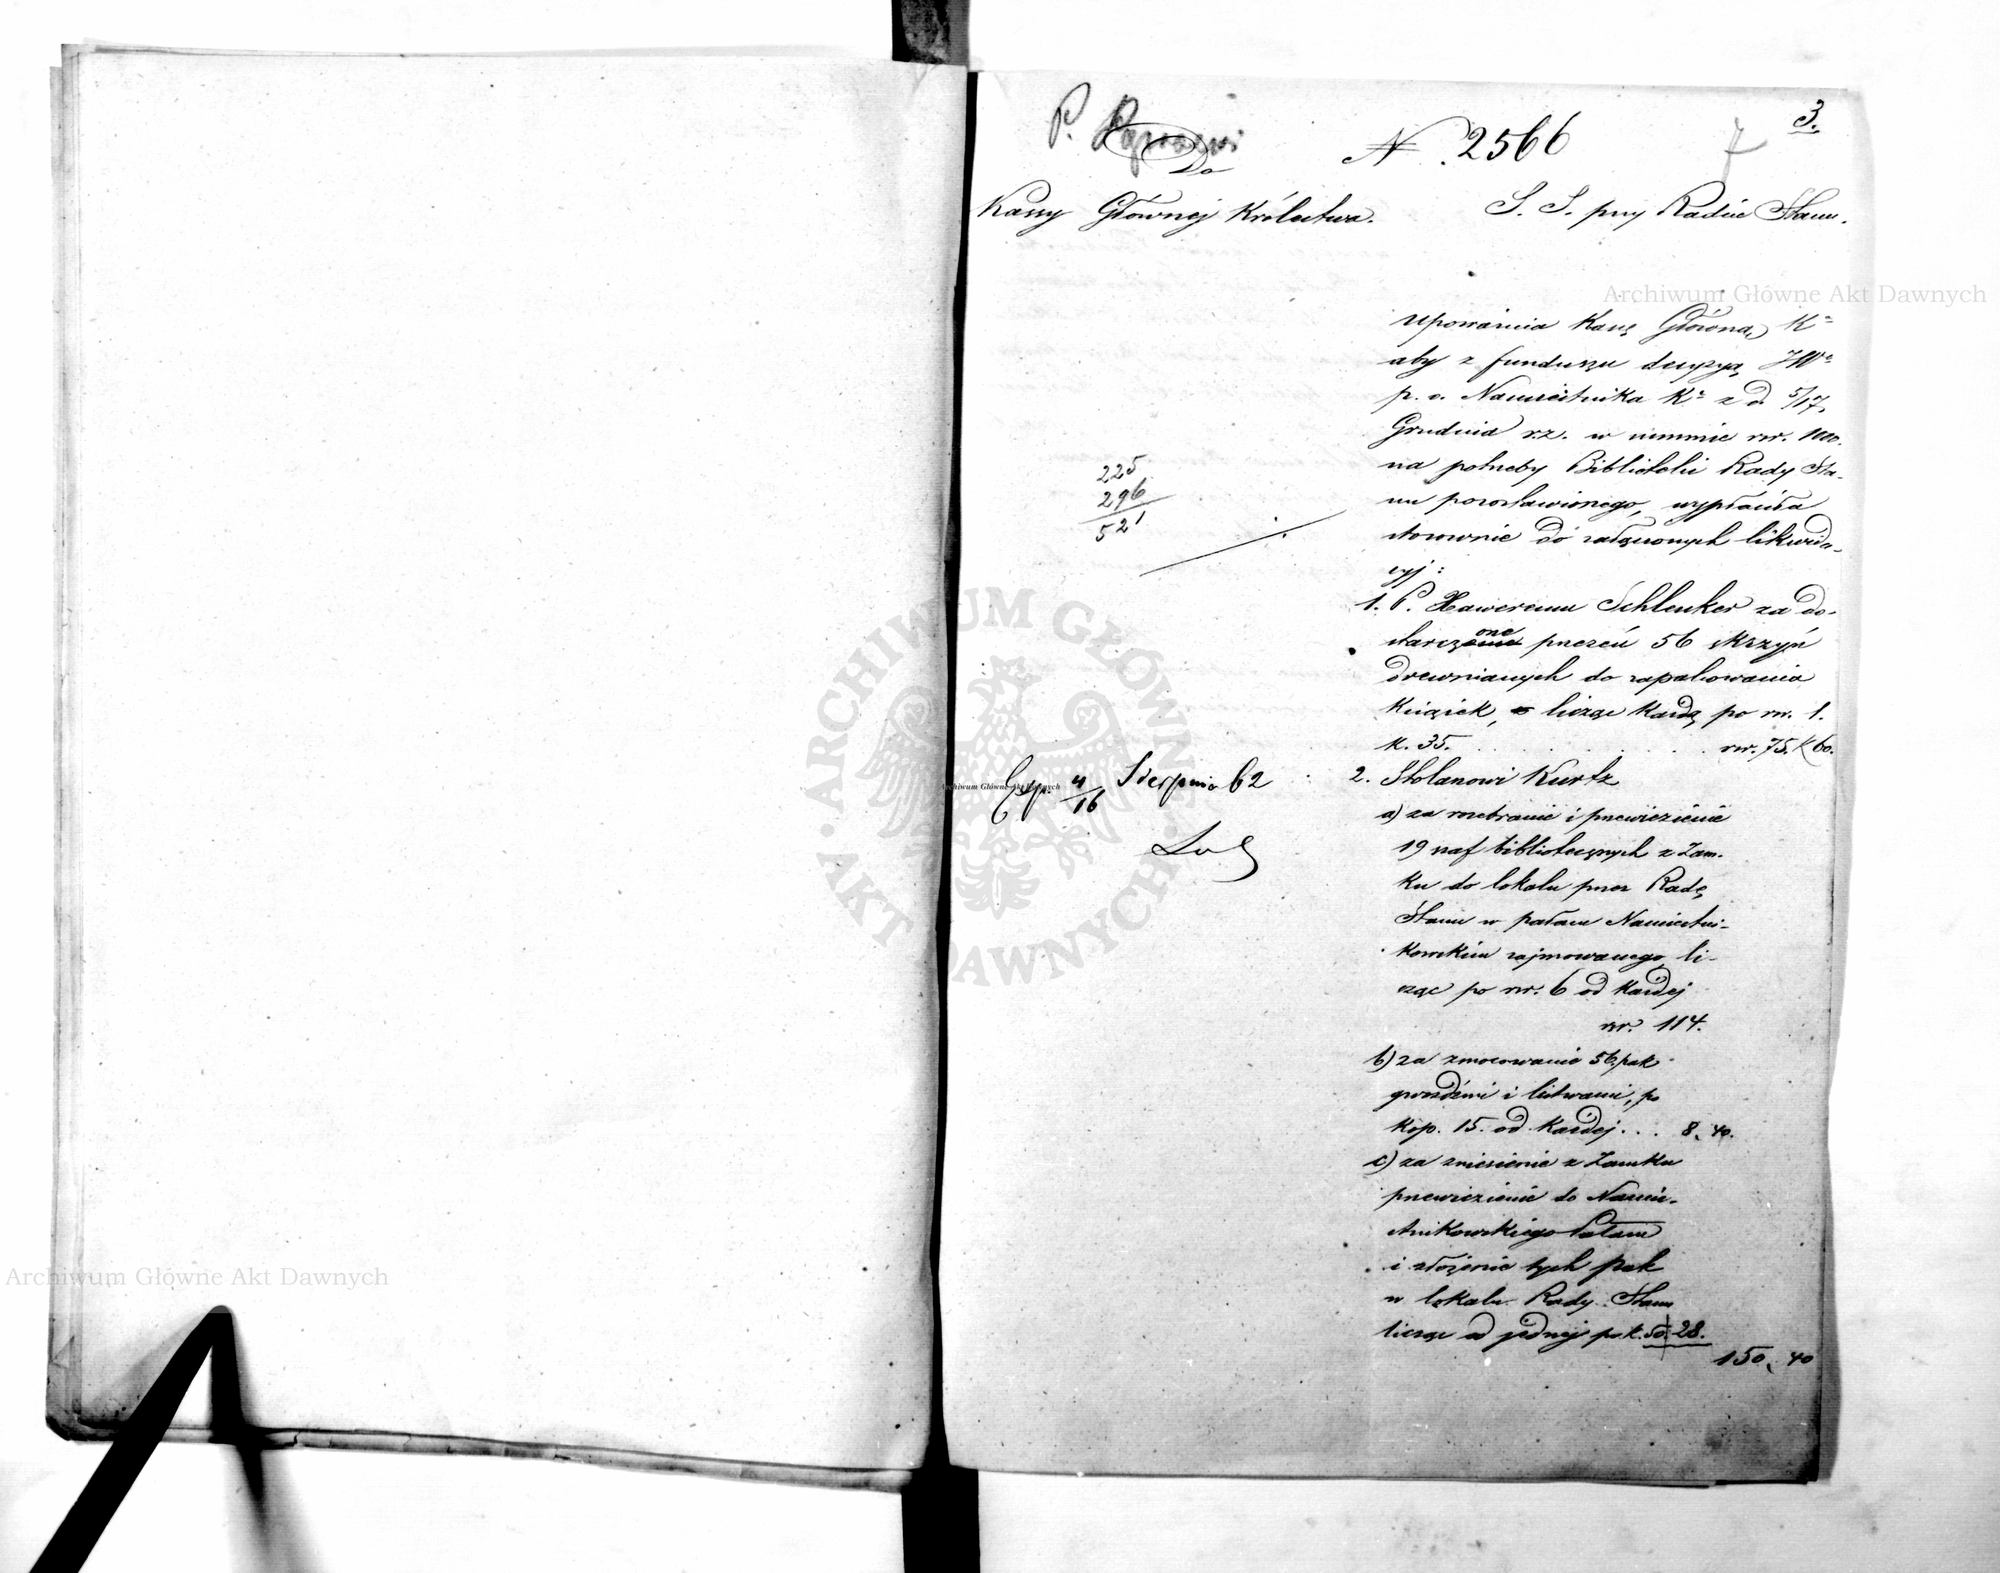 3.
7
P.
N. 2566
Do
Kassy Głównej Królestwa.
S. S. przy Radzie Stanu.
upoważnia Kassę Główną Kr
aby z funduszu decyzyą JWo
p. o. Namiestnika Kr z d. 5/17
Grudnia r.z. w summie rsr. 1000.
na potrzeby Biblioteki Rady Sta-
nu pozostawionego, wypłaciła
stosownie do załączonych likwida-
cyj:
225
296
521
1. P. Xaweremu Schlenker za do-
starczone przezeń 56 skrzyń
drewnianych do zapakowania
Książek, licząc każdą po rsr. 1.
k. 35. . . . . . . rsr. 75. k 60.
Exp. 4/16 Sierpnia 62
2. Stolarzowi Kurtz
a) za rozebranie i przewiezienie
19 szaf bibliotecznych z Zam-
ku do lokalu przez Radę
Stanu w pałacu Namiestni-
kowskim zajmowanego, li-
cząc po rsr. 6 od każdej
rsr. 114.
b) za zmocowanie 56 pak
gwoździmi i listwami, po
kop. 15. od każdej . . . 8, 40.
c) za zniesienie z Zamku
przewiezienie do Namie-
stnikowskiego Pałacu
i złożenie tych pak
w lokalu Rady Stanu
licząc od jednej po k. 50. 28.
150, 40
Archiwum Główne Akt Dawnych
Archiwum Główne Akt Dawnych
Archiwum Główne Akt Dawnych
ARCHIWUM GŁÓWNE AKT DAWNYCH